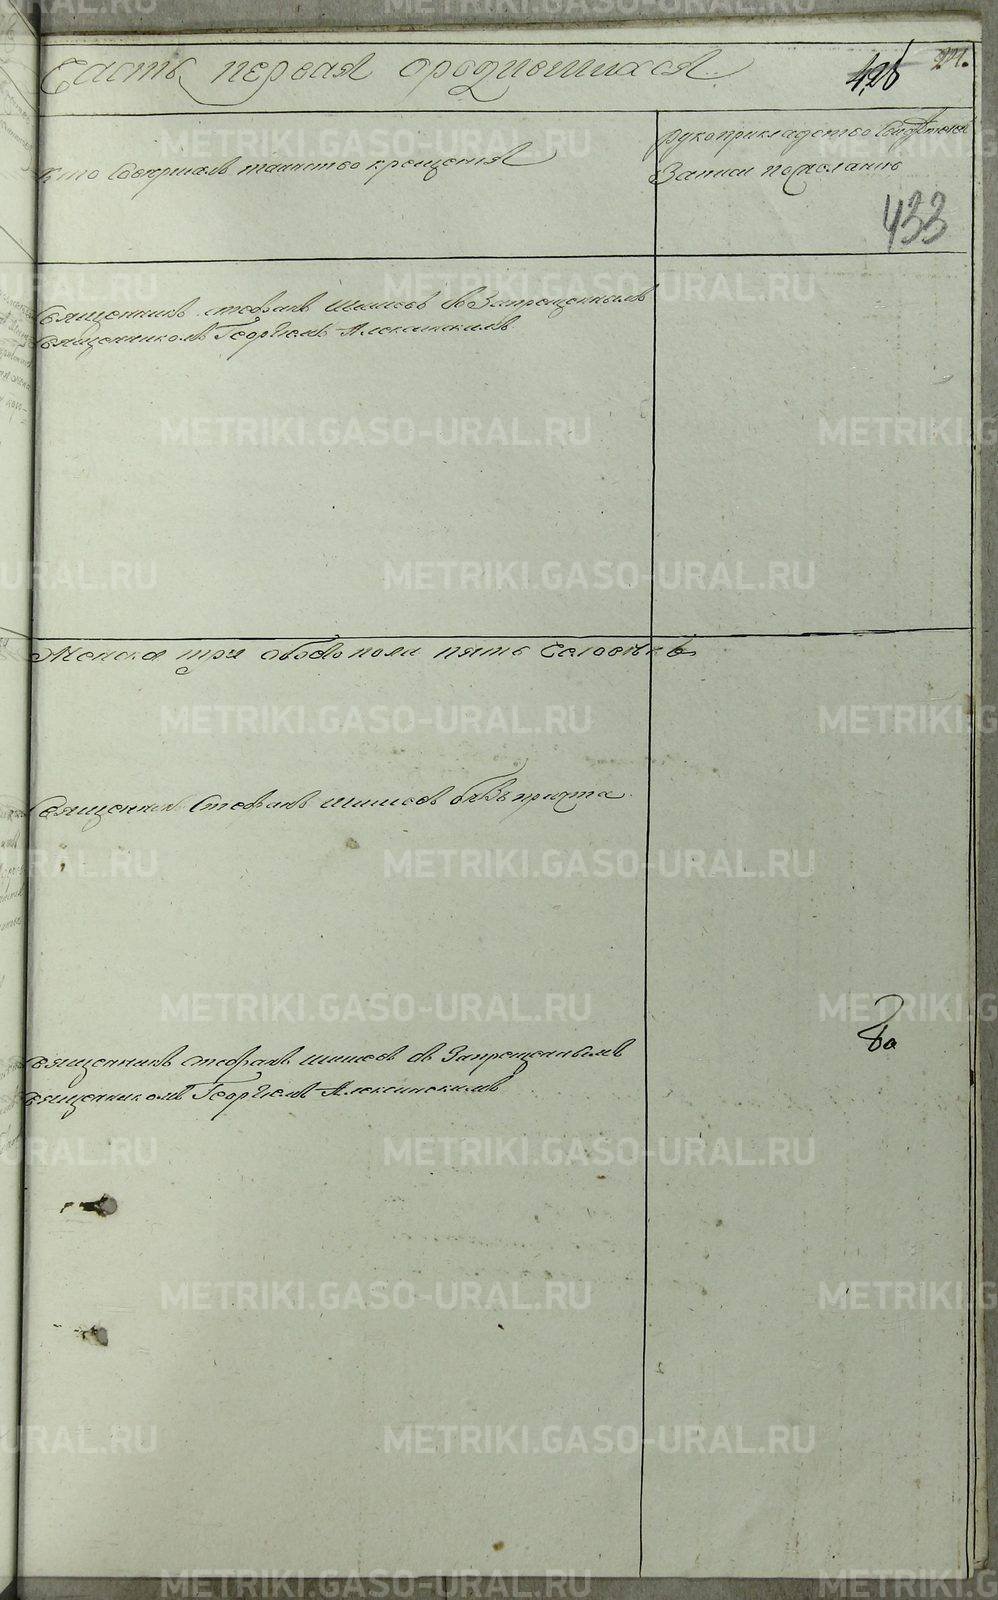 Часть первая ородившихся
426
221.
Кто совершалъ таинство крещенія
рукоприкладство свидѣтелей
записи по желанію
433
священникъ стефанъ Шишовъ съ Запрещеннымъ
священникомъ Георгіемъ Алексинскимъ
Женска три обоево пола пять Человѣкъ
Священникъ Стефанъ Шишовъ безъ причта
священникъ стефанъ шишовъ съ Запрещеннымъ
священникомъ Георгіемъ Алексинскимъ
METRIKI.GASO-URAL.RU